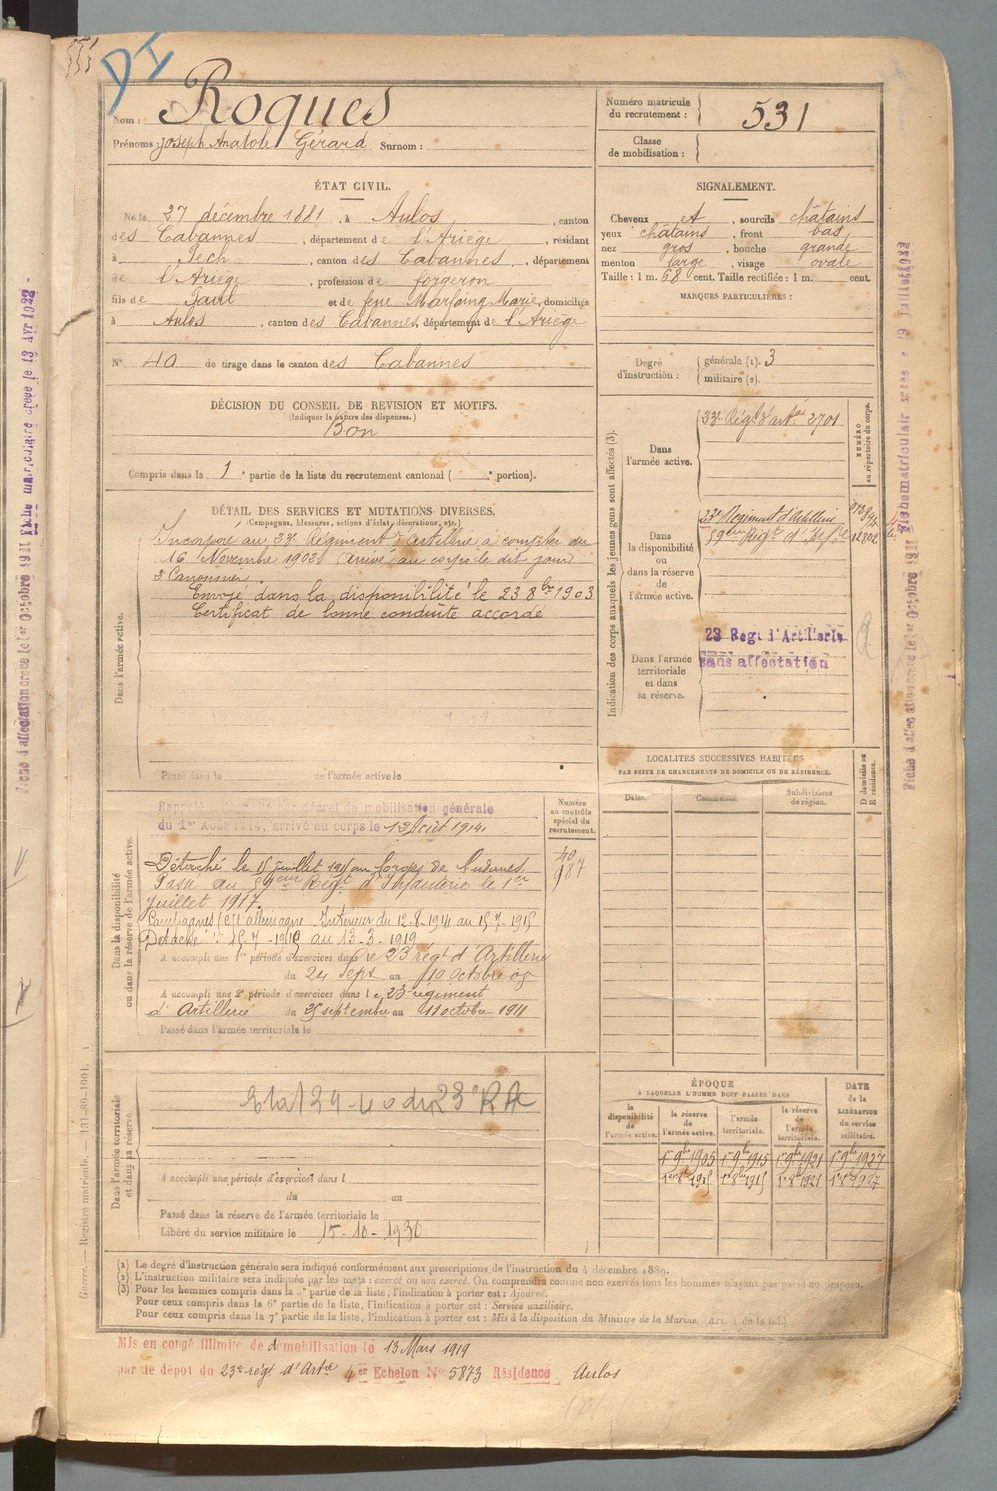 DI
Nom : Roques
Prénoms : Joseph Anatole Gérard Surnom :
Numéro matricule du recrutement : 531
Classe de mobilisation :
ÉTAT CIVIL.
Né le 27 décembre 1881, à Aulos, canton
des Cabannes, département de l'Ariège, résidant
à Pech, canton des Cabannes, département
de l'Ariège, profession de forgeron
fils de Paul et de feue Marfaing Marie, domiciliés
à Aulos, canton des Cabannes, département de l'Ariège
N° 40 de tirage dans le canton des Cabannes
SIGNALEMENT.
Cheveux et, sourcils châtains
yeux châtains, front bas
nez gros, bouche grande
menton large, visage ovale
Taille : 1 m. 68 cent. Taille rectifiée : 1 m. cent.
MARQUES PARTICULIÈRES :
Degré d'instruction : générale (1). 3
militaire (2).
DÉCISION DU CONSEIL DE REVISION ET MOTIFS.
(Indiquer la nature des dispenses.)
Bon
Compris dans la 1e partie de la liste du recrutement cantonal ( e portion).
DÉTAIL DES SERVICES ET MUTATIONS DIVERSES.
(Campagnes, blessures, actions d'éclat, décorations, etc.)
Dans l'armée active.
Incorporé au 23e Régiment d'Artillerie à compter du
16 Novembre 1902. Arrivé au corps le dit jour
2e Canonnier.
Envoyé dans la disponibilité le 23 8bre 1903
Certificat de bonne conduite accordé
Passé dans la de l'armée active le
Indication des corps auxquels les jeunes gens sont affectés (3).
NUMÉRO au répertoire du corps.
Dans l'armée active.
23e Régt d'Artie 2701
Dans la disponibilité ou dans la réserve de l'armée active.
23e Régiment d'Artillerie
59ème Régt d'Inf.ie
Dans l'armée territoriale et dans sa réserve.
23 Regt d'Artillerie
Sans affectation
LOCALITÉS SUCCESSIVES HABITÉES
PAR SUITE DE CHANGEMENTS DE DOMICILE OU DE RÉSIDENCE.
Dates. Communes. Subdivisions de région. D domicile ou R résidence.
Dans la disponibilité ou dans la réserve de l'armée active.
Numéro au contrôle spécial du recrutement.
Rappelé à l'activité par décret de mobilisation générale
du 1er Août 1914, arrivé au corps le 12 Août 1914.
40
987
Détaché le 15 juillet 1915 au Forges de
Passé au 59ème Régt d'Infanterie le 1er
Juillet 1917.
Campagnes c/ l'allemagne Intérieur du 12-8-1914 au 15-7-1915
Détaché 15-7-1915 au 13-3-1919
A accompli une 1re période d'exercices dans le 23 régt d'Artillerie
du 24 Sept au 10 octobre 08
A accompli une 2e période d'exercices dans le 23 régiment
d'Artillerie du 25 septembre au 11 octobre 1911
Passé dans l'armée territoriale le
Dans l'armée territoriale et dans sa réserve.
23e RA
A accompli une période d'exercices dans l
du au
Passé dans la réserve de l'armée territoriale le
Libéré du service militaire le 15-10-1930
ÉPOQUE
À LAQUELLE L'HOMME DOIT PASSER DANS
la disponibilité de l'armée active. la réserve de l'armée active. l'armée territoriale. la réserve de l'armée territoriale.
DATE de la LIBÉRATION du service militaire.
1er 9bre 1905 1er 9bre 1915 1er 9bre 1921 1er 9bre 1927
1er 8bre 1915 1er 8bre 1921 1er 8bre 1927
(1) Le degré d'instruction générale sera indiqué conformément aux prescriptions de l'instruction du 4 décembre 1889.
(2) L'instruction militaire sera indiquée par les mots : exercé ou non exercé. On comprendra comme non exercés tous les hommes n'ayant pas passé au drapeau.
(3) Pour les hommes compris dans la 5e partie de la liste, l'indication à porter est : Ajourné.
Pour ceux compris dans la 6e partie de la liste, l'indication à porter est : Service auxiliaire.
Pour ceux compris dans la 7e partie de la liste, l'indication à porter est : Mis à la disposition du Ministre de la Marine. (Art. 4 de la loi.)
Mis en congé illimité de démobilisation le 13 Mars 1919
par le dépot du 23e régt d'Artie 4er Echelon N° 5873 Résidence Aulos
Guerre. — Registre matricule. — 131-80-1901.
Fiche d'affectation créée le 1er Octobre 1921 Fiche matriculaire créée le 13 Avr 1922
Fiche d'affectation créée le 1er Octobre 1921 Fiche matriculaire créée le 19 Juillet 1922